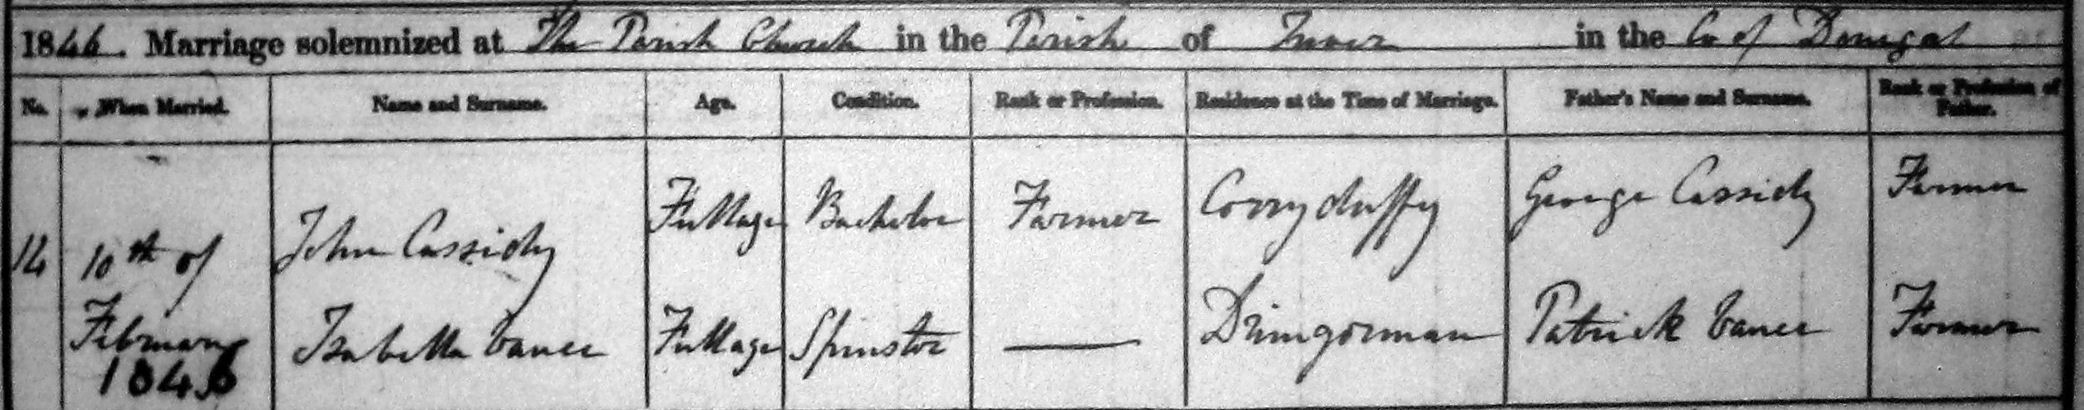 1846. Marriage solemnized at The Parish Church in the Parish of Inver in the Co of Donegal
No. When Married. Name and Surname. Age. Condition. Rank or Profession. Residence at the Time of Marriage. Father's Name and Surname. Rank or Profession of Father.
14 10th of February 1846
John Cassidy Full age Bachelor Farmer Corryduffy George Cassidy Farmer
Isabella Vance Full age Spinster — Drimgorman Patrick Vance Farmer